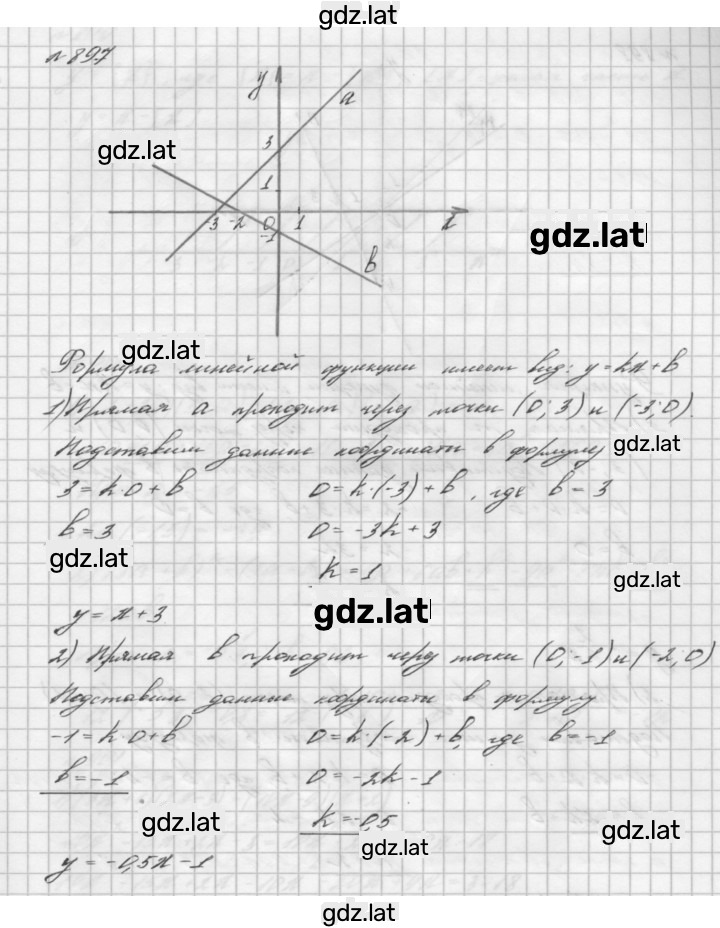 gdz.lat
№ 897
y
a
3
gdz.lat
1
-3 -2 0 1 x
-1
gdz.lat
b
gdz.lat
Формула линейной функции имеет вид: y = kx + b
1) Прямая a проходит через точки (0; 3) и (-3; 0).
Подставим данные координаты в формулу gdz.lat
3 = k·0 + b 0 = k·(-3) + b, где b = 3
b = 3 0 = -3k + 3
gdz.lat
k = 1 gdz.lat
y = x + 3 gdz.lat
2) Прямая b проходит через точки (0; -1) и (-2; 0)
Подставим данные координаты в формулу
-1 = k·0 + b 0 = k·(-2) + b, где b = -1
b = -1 0 = -2k - 1
gdz.lat k = -0,5 gdz.lat
gdz.lat
y = -0,5x - 1
gdz.lat